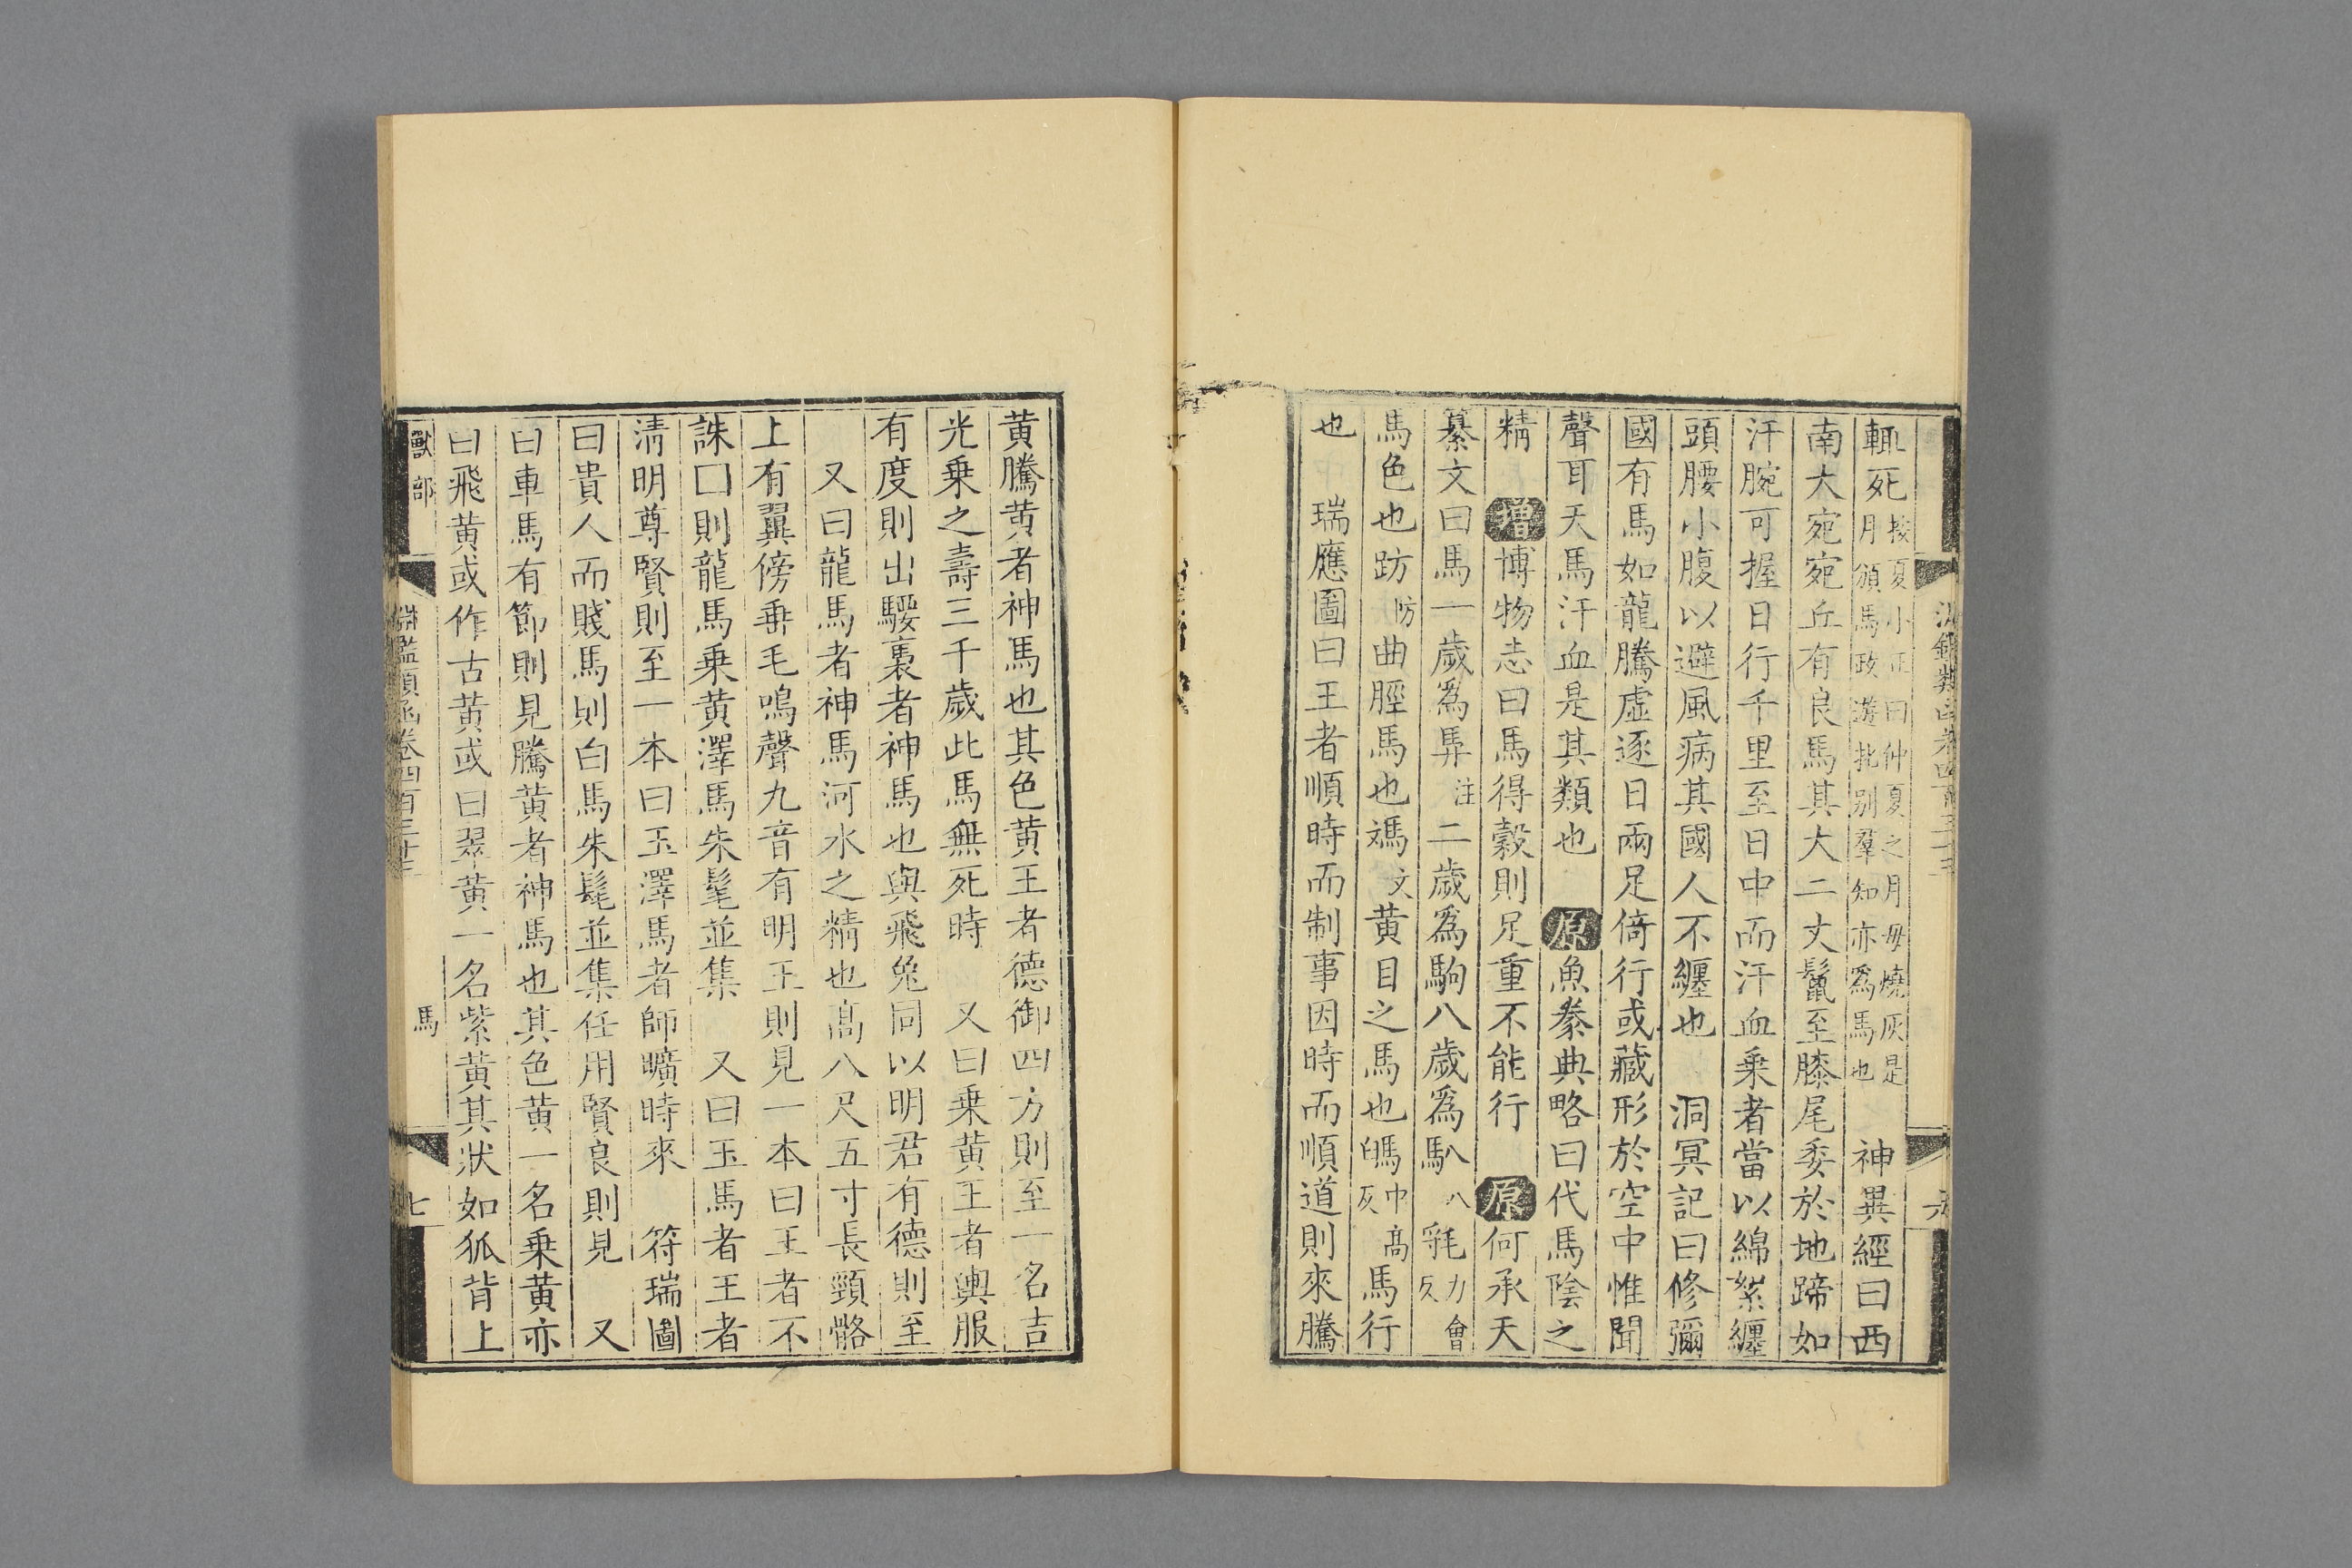 輒死按夏小正曰仲夏之月毋燒灰是月頒馬政游牝别羣知亦爲馬也　神異經曰西
南大宛宛丘有良馬其大二丈鬛至膝尾委於地蹄如
汗腕可握日行千里至日中而汗血乗者當以綿絮纒
頭腰小腹以避風病其國人不纒也　洞冥記曰修彌
國有馬如龍騰虛逐日兩足倚行或藏形於空中惟聞
聲耳天馬汗血是其類也　原魚豢典略曰代馬陰之
精　增博物志曰馬得穀則足重不能行　原何承天
纂文曰馬一歲爲馬注二歲爲駒八歲爲馬八八 力會反
馬色也 防曲脛馬也 文黄目之馬也 中高反馬行
也　瑞應圖曰王者順時而制事因時而順道則來騰
黄騰黄者神馬也其色黄王者德御四方則至一名吉
光乗之壽三千歲此馬無死時　又曰乗黄王者輿服
有度則出騕褭者神馬也與飛兔同以明君有德則至
又曰龍馬者神馬河水之精也髙八尺五寸長頸骼
上有翼傍垂毛鳴聲九音有明王則見一本曰王者不
誅囗則龍馬乗黄澤馬朱髦並集　又曰玉馬者王者
清明尊賢則至一本曰玉澤馬者師曠時來　符瑞圖
曰貴人而賤馬則白馬朱髦並集任用賢良則見　又
曰車馬有節則見騰黄者神馬也其色黄一名乗黄亦
曰飛黄或作古黄或曰翠黄一名紫黄其狀如狐背上
獸部 淵鑑類函卷四百三十三 馬 七